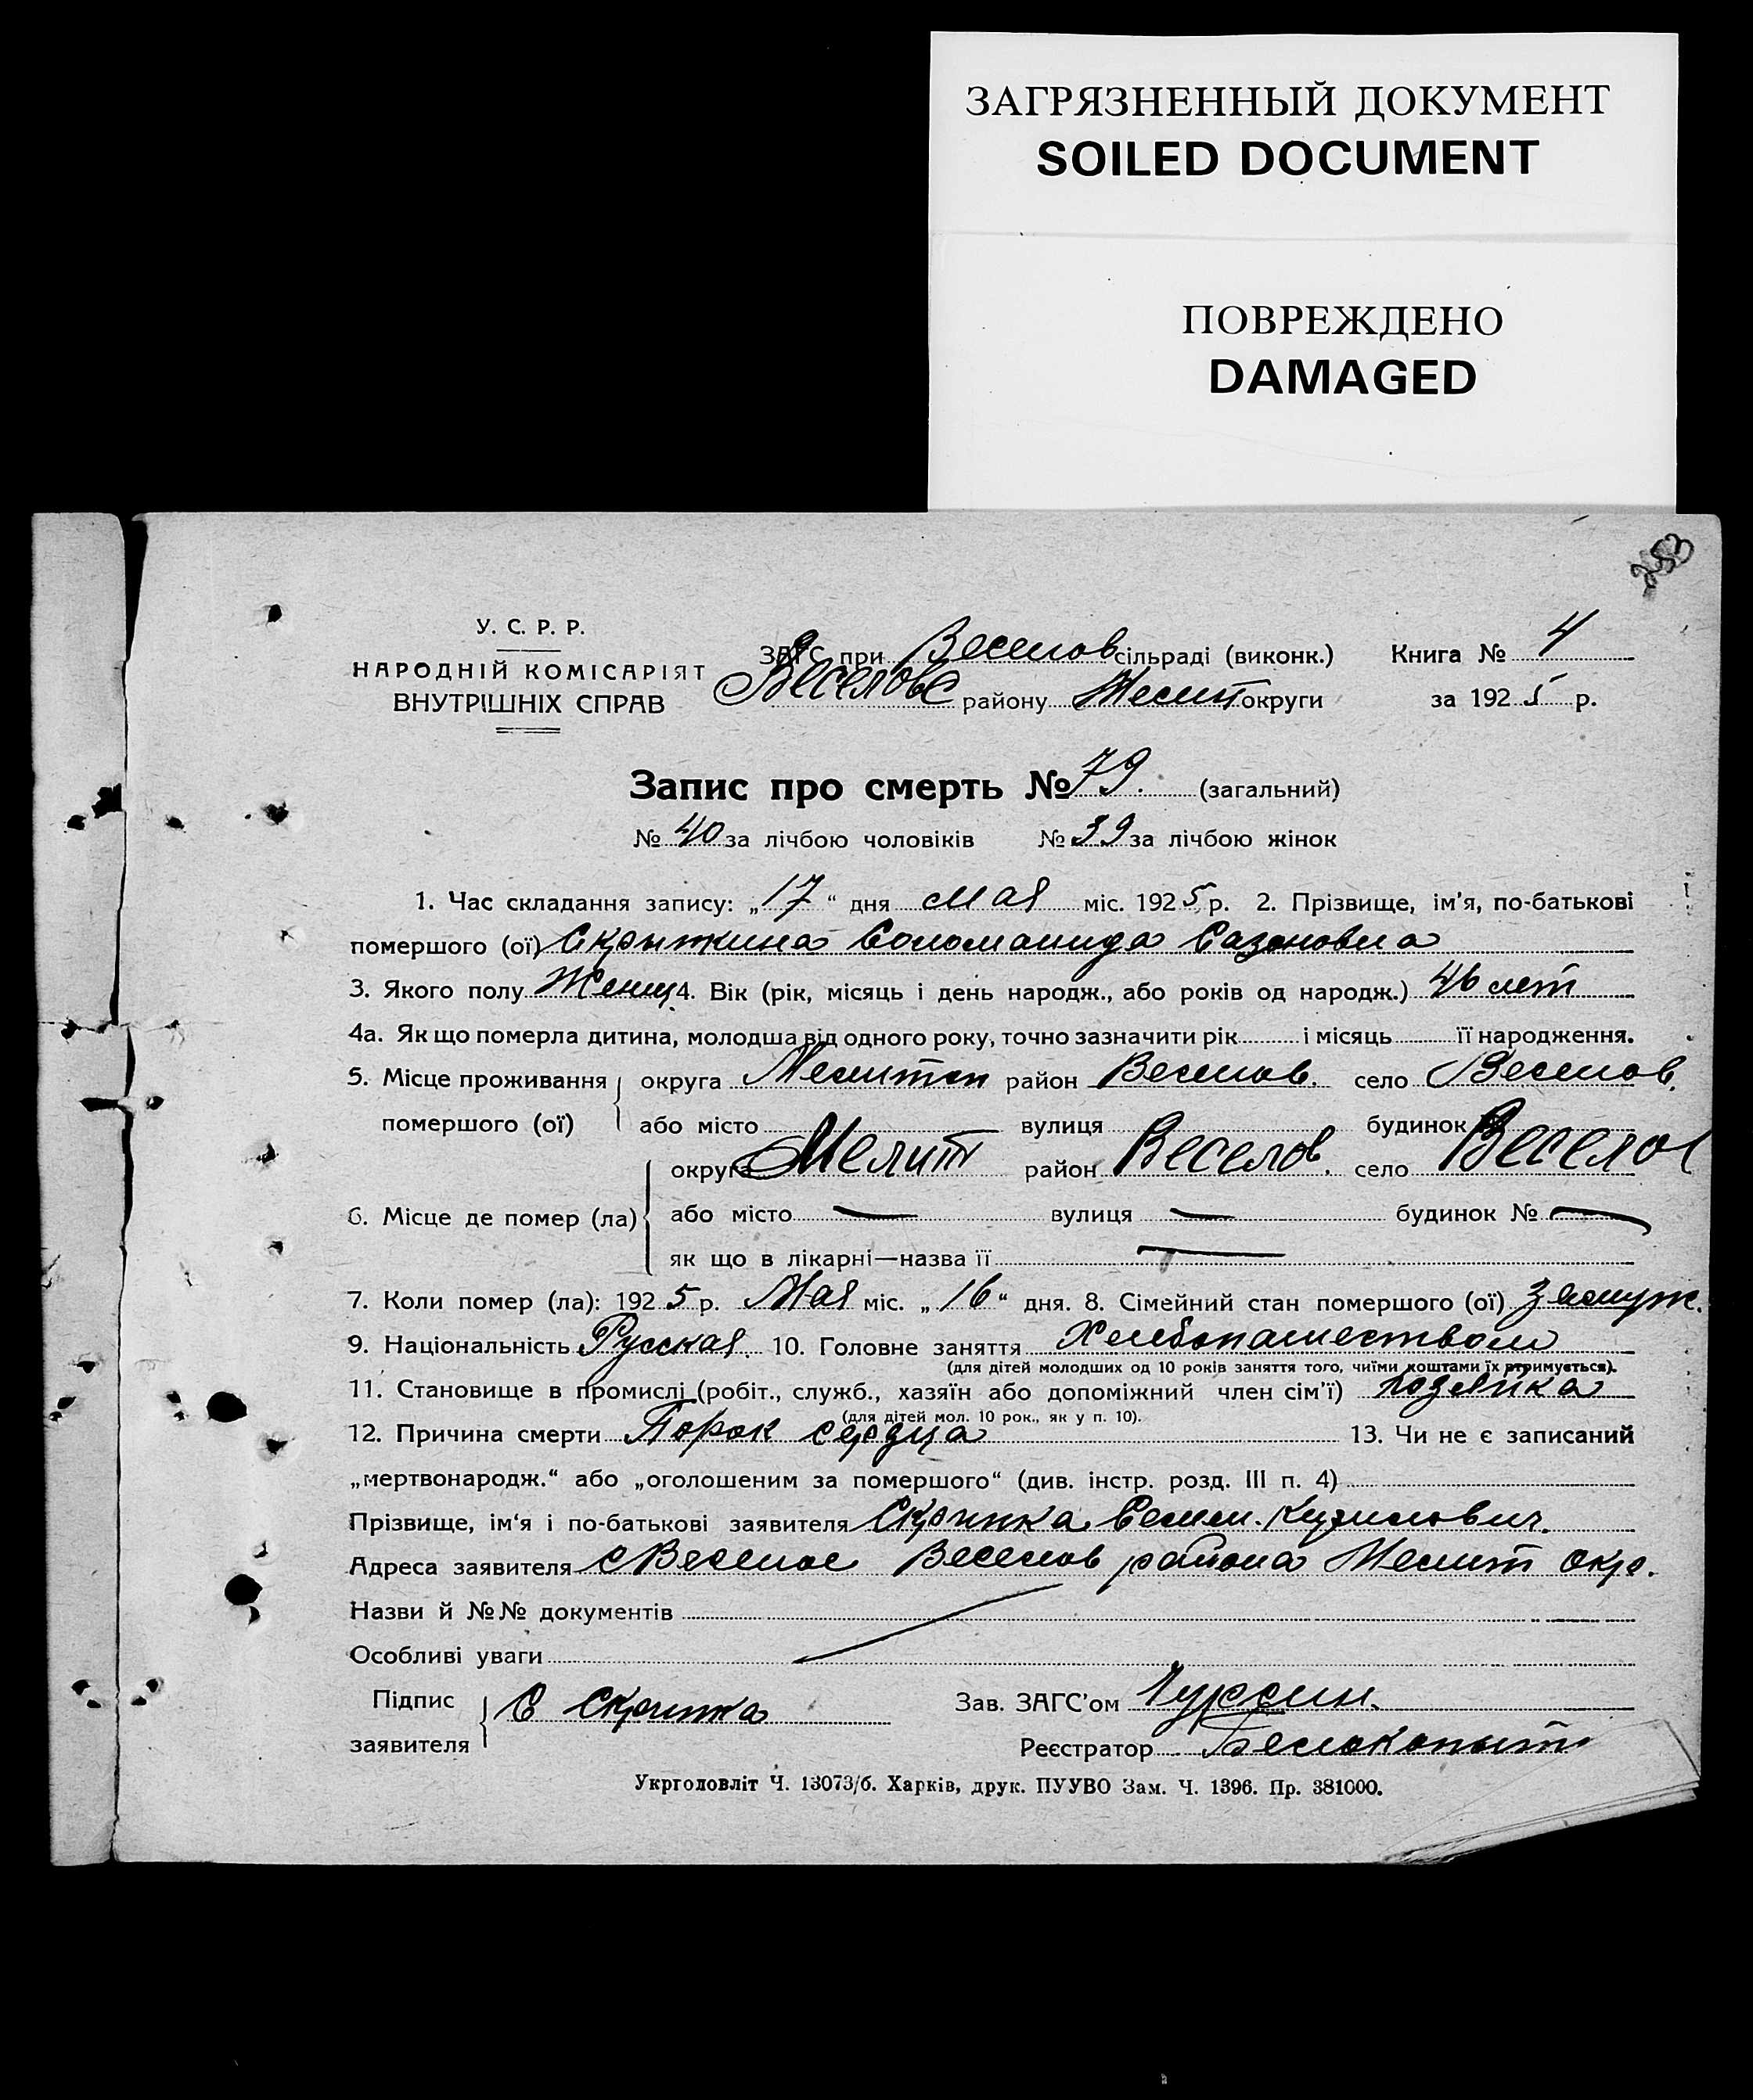 ЗАГРЯЗНЕННЫЙ ДОКУМЕНТ
SOILED DOCUMENT
ПОВРЕЖДЕНО
DAMAGED
253
У. С. Р. Р.
НАРОДНІЙ КОМІСАРІЯТ
ВНУТРІШНІХ СПРАВ
ЗАГС при Веселов сільраді (виконк.) Книга № 4
Веселовс району Мелит округи за 1925 р.
Запис про смерть № 79. (загальний)
№ 40 за лічбою чоловіків № 39 за лічбою жінок
1. Час складання запису: „17“ дня мая міс. 1925 р. 2. Прізвище, ім'я, по-батькові
помершого (ої) Соломанида Сазоновна
3. Якого полу Женщ 4. Вік (рік, місяць і день народж., або років од народж.) 46 лет
4а. Як що померла дитина, молодша від одного року, точно зазначити рік і місяць її народження.
5. Місце проживання округа Мелитоп район Веселов. село Веселов.
помершого (ої) або місто вулиця будинок
округа Мелит район Веселов. село Веселое
6. Місце де помер (ла) або місто — вулиця — будинок № —
як що в лікарні—назва її —
7. Коли помер (ла): 1925 р. Мая міс. „16“ дня. 8. Сімейний стан помершого (ої) замуж.
9. Національність Русская. 10. Головне заняття Хлебопашеством
(для дітей молодших од 10 років заняття того, чиїми коштами їх втримується).
11. Становище в промислі (робіт., служб., хазяїн або допоміжний член сім'ї) хозяйка
(для дітей мол. 10 рок., як у п. 10).
12. Причина смерти Порок сердца 13. Чи не є записаний
„мертвонародж.“ або „оголошеним за помершого“ (див. інстр. розд. III п. 4)
Прізвище, ім'я і по-батькові заявителя Семен. Кузьмович.
Адреса заявителя с Веселое Веселов района Мелит окр.
Назви й №№ документів
Особливі уваги
Підпис
заявителя С
Зав. ЗАГС'ом
Реєстратор Белокопыт
Укрголовліт Ч. 13073/б. Харків, друк. ПУУВО Зам. Ч. 1396. Пр. 381000.